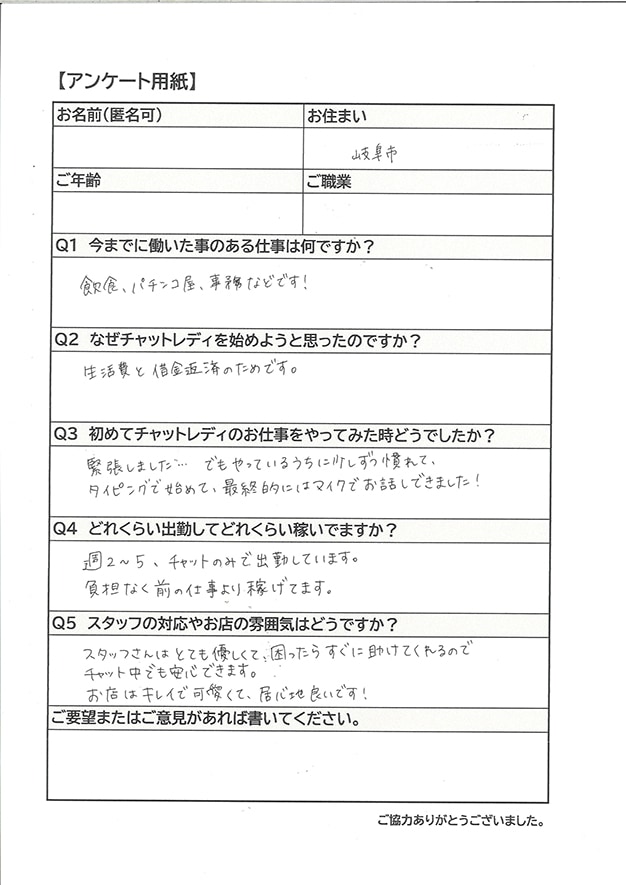 【アンケート用紙】
お名前(匿名可)
お住まい
岐阜市
ご年齢
ご職業
Q1 今までに働いた事のある仕事は何ですか？
飲食、パチンコ屋、事務などです!
Q2 なぜチャットレディを始めようと思ったのですか？
生活費と借金返済のためです。
Q3 初めてチャットレディのお仕事をやってみた時どうでしたか？
緊張しました… でもやっているうちに少しずつ慣れて、
タイピングで始めて、最終的にはマイクでお話しできました!
Q4 どれくらい出勤してどれくらい稼いでますか？
週2～5、チャットのみで出勤しています。
負担なく前の仕事より稼げてます。
Q5 スタッフの対応やお店の雰囲気はどうですか？
スタッフさんはとても優しくて、困ったらすぐに助けてくれるので
チャット中でも安心できます。
お店はキレイで可愛くて、居心地良いです!
ご要望またはご意見があれば書いてください。
ご協力ありがとうございました。